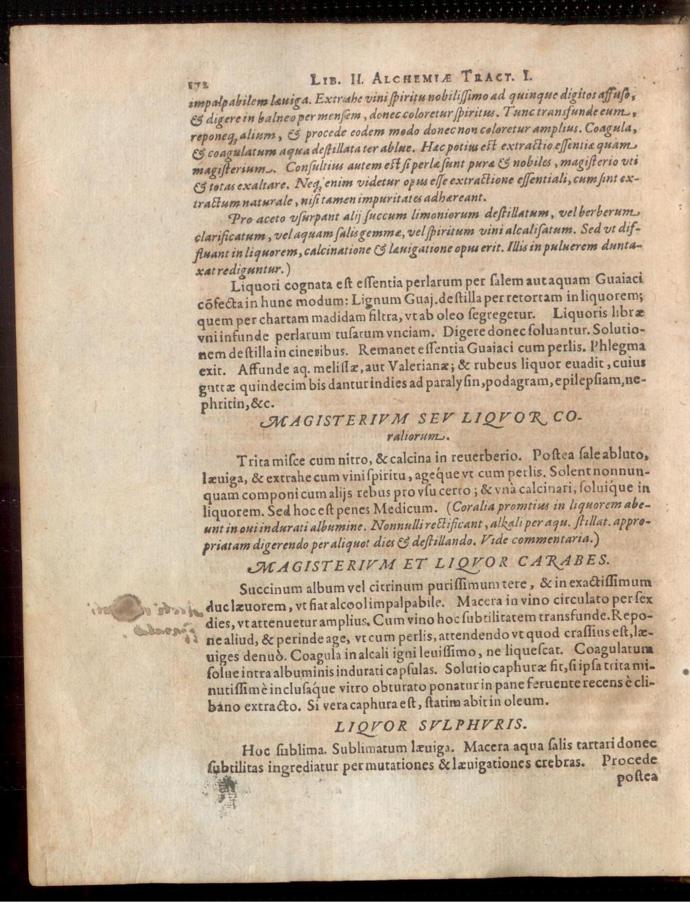 172 LIB. II. ALCHEMIÆ TRACT. I.
impalpabilem læuiga. Extrahe vini spiritu nobilissimo ad quinque digitos affuso,
& digere in balneo per mensem, donec coloretur spiritus. Tunc transfunde eum,
reponeq; alium, & procede eodem modo donec non coloretur amplius. Coagula,
& coagulatum aqua destillata ter ablue. Hæc potius est extractio essentiæ quam
magisterium. Consultius autem est si perlæ sunt puræ & nobiles, magisterio vti
& totas exaltare. Neq; enim videtur opus esse extractione essentiali, cum sint ex-
tractum naturale, nisi tamen impuritates adhæreant.
Pro aceto vsurpant alij succum limoniorum destillatum, vel berberum
clarificatum, vel aquam salis gemmæ, vel spiritum vini alcalisatum. Sed vt dif-
fluant in liquorem, calcinatione & læuigatione opus erit. Illis in puluerem dunta-
xat rediguntur.)
Liquori cognata est essentia perlarum per salem aut aquam Guaiaci
cōfecta in hunc modum: Lignum Guaj. destilla per retortam in liquorem;
quem per chartam madidam filtra, vt ab oleo segregetur. Liquoris libræ
vni infunde perlarum tusarum vnciam. Digere donec soluantur. Solutio-
nem destilla in cineribus. Remanet essentia Guaiaci cum perlis. Phlegma
exit. Affunde aq. melissæ, aut Valerianæ; & rubeus liquor euadit, cuius
guttæ quindecim bis dantur indies ad paralysin, podagram, epilepsiam, ne-
phritin, &c.
MAGISTERIVM SEV LIQVOR CO-
raliorum.
Trita misce cum nitro, & calcina in reuerberio. Postea sale abluto,
læuiga, & extrahe cum vini spiritu, ageque vt cum perlis. Solent nonnun-
quam componi cum alijs rebus pro vsu certo; & vnà calcinari, soluique in
liquorem. Sed hoc est penes Medicum. (Coralia promtius in liquorem abe-
unt in oui indurati albumine. Nonnulli rectificant, alkali per aqu. stillat. appro-
priatam digerendo per aliquot dies & destillando. Vide commentaria.)
MAGISTERIVM ET LIQVOR CARABES.
Succinum album vel citrinum purissimum tere, & in exactissimum
duc læuorem, vt fiat alcool impalpabile. Macera in vino circulato per sex
dies, vt attenuetur amplius. Cum vino hoc subtilitatem transfunde. Repo-
ne aliud, & perinde age, vt cum perlis, attendendo vt quod crassius est, læ-
uiges denuò. Coagula in alcali igni leuissimo, ne liquescat. Coagulatum
solue intra albuminis indurati capsulas. Solutio caphuræ fit, si ipsa trita mi-
nutissimè inclusaque vitro obturato ponatur in pane feruente recens è cli-
bano extracto. Si vera caphura est, statim abit in oleum.
LIQVOR SVLPHVRIS.
Hoc sublima. Sublimatum læuiga. Macera aqua salis tartari donec
subtilitas ingrediatur per mutationes & læuigationes crebras. Procede
postea